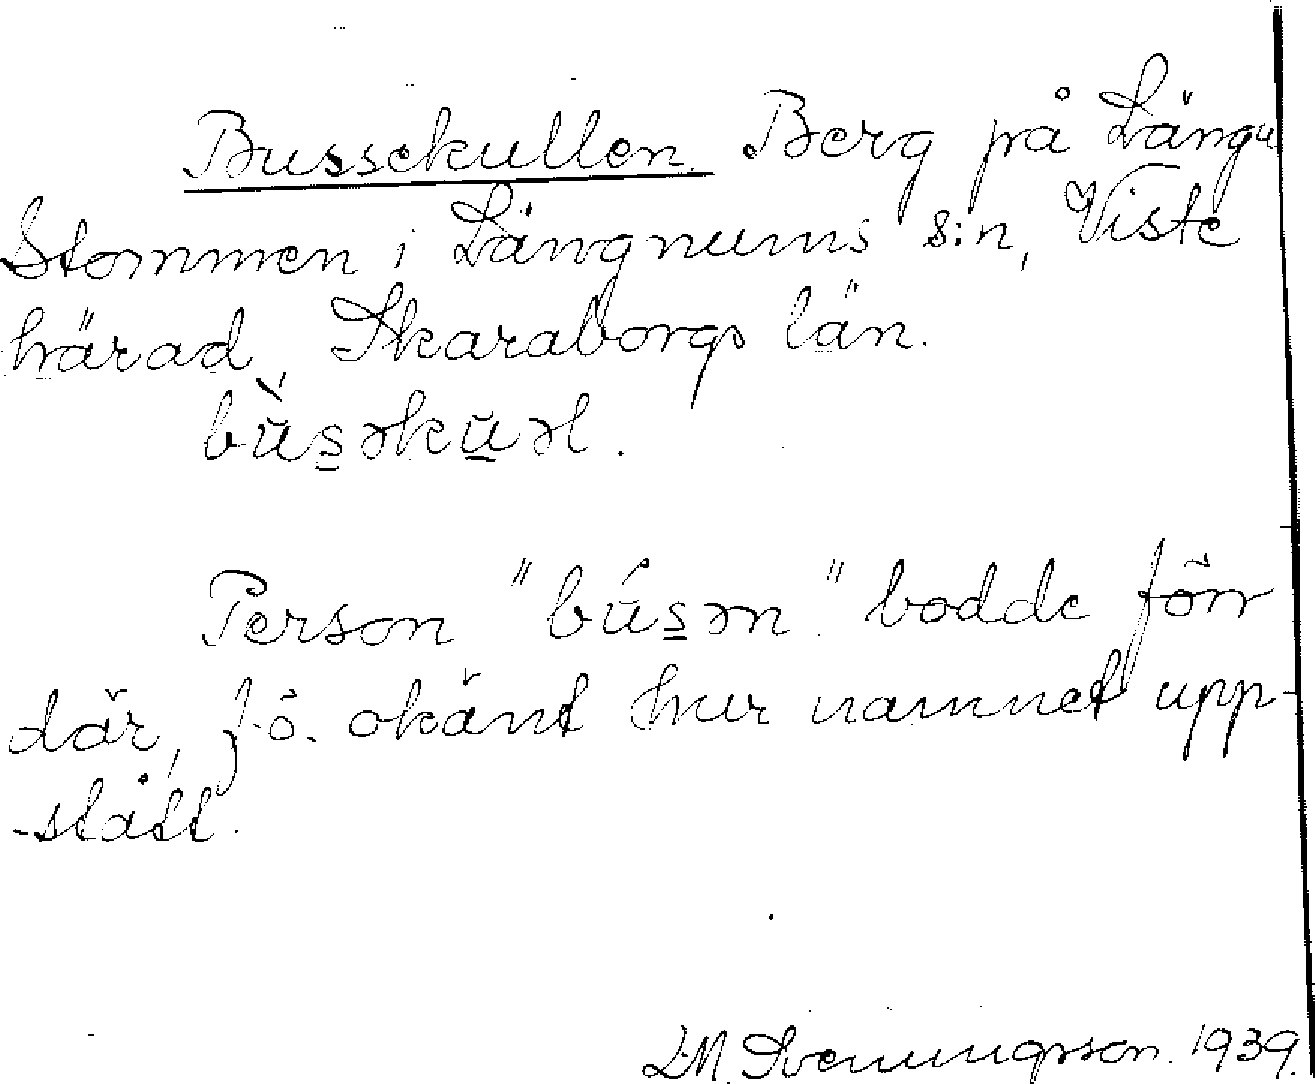 Bussekullen. Berg på Längn
Stommen i Längnums s:n, Viste
härad, Skaraborgs län.
bùs̲əku̲əl.
Person "bús̲ən" bodde förr
där, f.ö. okänt hur namnet upp-
-stått.
L.M. Svenungsson. 1939.